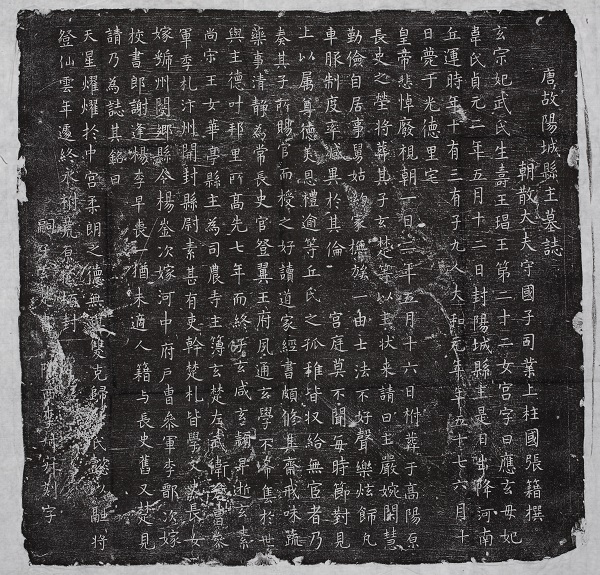 唐故陽城縣主墓誌
朝散大夫守國子司業上柱國張籍撰
玄宗妃武氏生壽王瑁王第二十二女宮字曰應玄母妃
韋氏貞元二年五月十二日封陽城縣主是日出降河南
丘運時年十有三有子九人大和元年年五十七六月十
日薨于光德里宅
皇帝悲悼廢視朝一日二年五月十六日祔葬于高陽原
長史之塋將葬其子玄楚等以其狀來請曰主嚴婉閑慧
勤儉自居事舅姑家族一由士法不好聲樂炫飾凡
車服制度率減異於其倫 宮庭莫不聞每時節對見
上以属尊德爽恩禮逾等丘氏之孤稚皆収給無宦者乃
奏其子所賜官而授之好讀道家經書頗脩其齋戒味蔬
藥事清静為常長史官登翼王府夙通玄學不希售於世
與主德叶邦里所高先七年而終子玄咸玄頴昇逝玄素
尚宗王女華亭縣主為司農寺主簿玄楚左武衛倉曹叅
軍季札汴州開封縣尉素甚有吏幹楚札皆學文長女
嫁虢州閿鄉縣令楊鋻次嫁河中府户曹叅軍李鄑次嫁
校書郎謝蓬楊李早喪一猶未適人籍与長史舊又楚見
請乃為誌其銘曰
天星燿燿於中宮柔朗之德無雙克歸氏懿以融將
登仙雲年遽終永樹荒原封
嗣子玄刻字